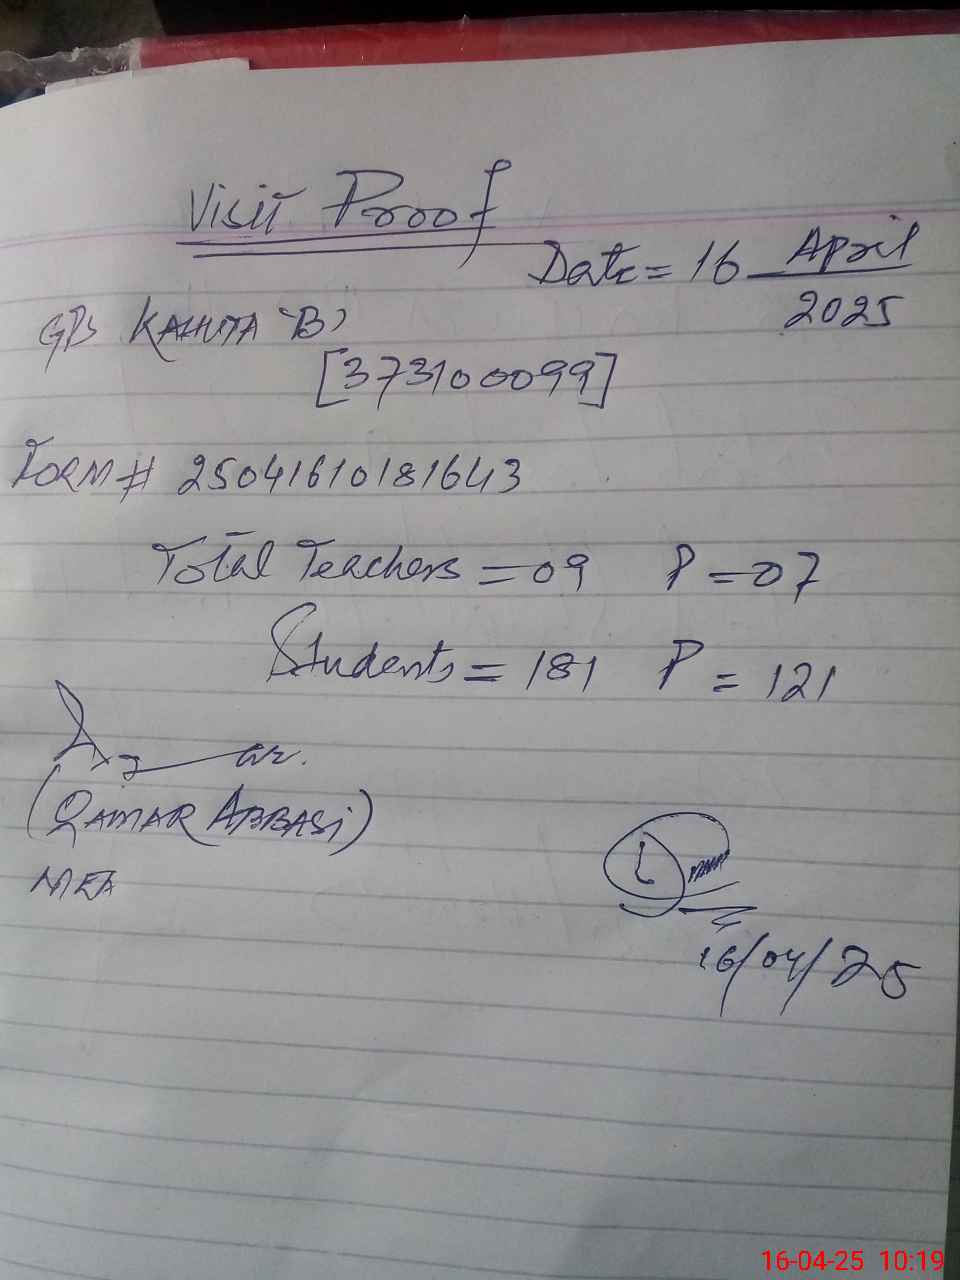 Visit Proof
Date = 16 April
2025
GPS KAHUTA 'B'
[373100099]
FORM # 25041610181643
Total Teachers = 09 P = 07
Students = 181 P = 121
(QAMAR ABBASI)
MEA
16/04/25
16-04-25 10:19